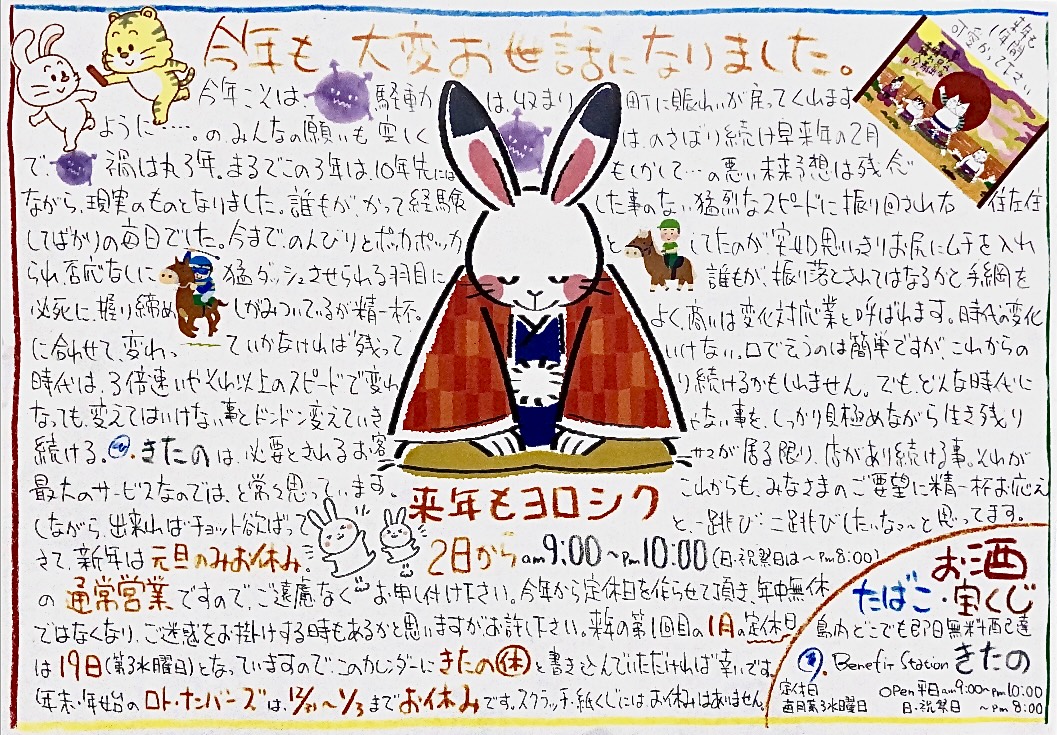 今年も大変お世話になりました。
今年こそは、騒動は、収まり町に賑わいが戻ってくれます
ように……。のみんなの願いも空しくは、のさばり続け早来年の2月
で、禍は丸3年。まるでこの3年は、10年先にはもしかして…の悪い未来予想は残念
ながら、現実のものとなりました。誰もが、かって経験した事のない猛烈なスピードに振り回され右往左往
してばかりの毎日でした。今まで、のんびりとポッカポッカとしてたのが、突如思いっきりお尻にムチを入れ
られ否応なしに猛ダッシュさせられる羽目に誰もが、振り落とされてはなるかと手綱を
必死に握り締めしがみついているが精一杯。よく、商いは変化対応業と呼ばれます。時代の変化
に合わせて、変わっていかなければ残っていけない。口で言うのは簡単ですがこれからの
時代は、3倍速いやそれ以上のスピードで変わり続けるかもしれません。でも、どんな時代に
なっても、変えてはいけない事とドンドン変えていきゃない事を、しっかり見極めながら生き残り
続ける。きたのは、必要とされるお客サマが居る限り、店があり続ける事。それが
最大のサービスなのでは、と常々思っています。これからも、みなさまのご要望に精一杯お応え
しながら、出来ればチョット欲ばってと、一跳び・二跳びしたいなっ〜と思ってます。
来年もヨロシク
さて、新年は元旦のみお休み。2日からam9:00〜pm10:00(日・祝祭日は〜pm8:00)
の通常営業ですので、ご遠慮なくお申し付け下さい。今年から定休日を作らせて頂き、年中無休
ではなくなり、ご迷惑をお掛けする時もあるかと思いますがお許し下さい。来年の第1回目の1月の定休日
は19日(第3水曜日)となっていますので、このカレンダーにきたの㊡と書き込んでいただければ幸いです。
年末・年始のロト・ナンバーズは、12/31〜1/3までお休みです。スクラッチ・紙くじには、お休みはありません。
お酒
たばこ・宝くじ
島内どこでも即日無料配達
Benefit Station きたの
定休日
毎月第3水曜日
Open 平日am9:00〜pm10:00
日・祝祭日 〜pm8:00